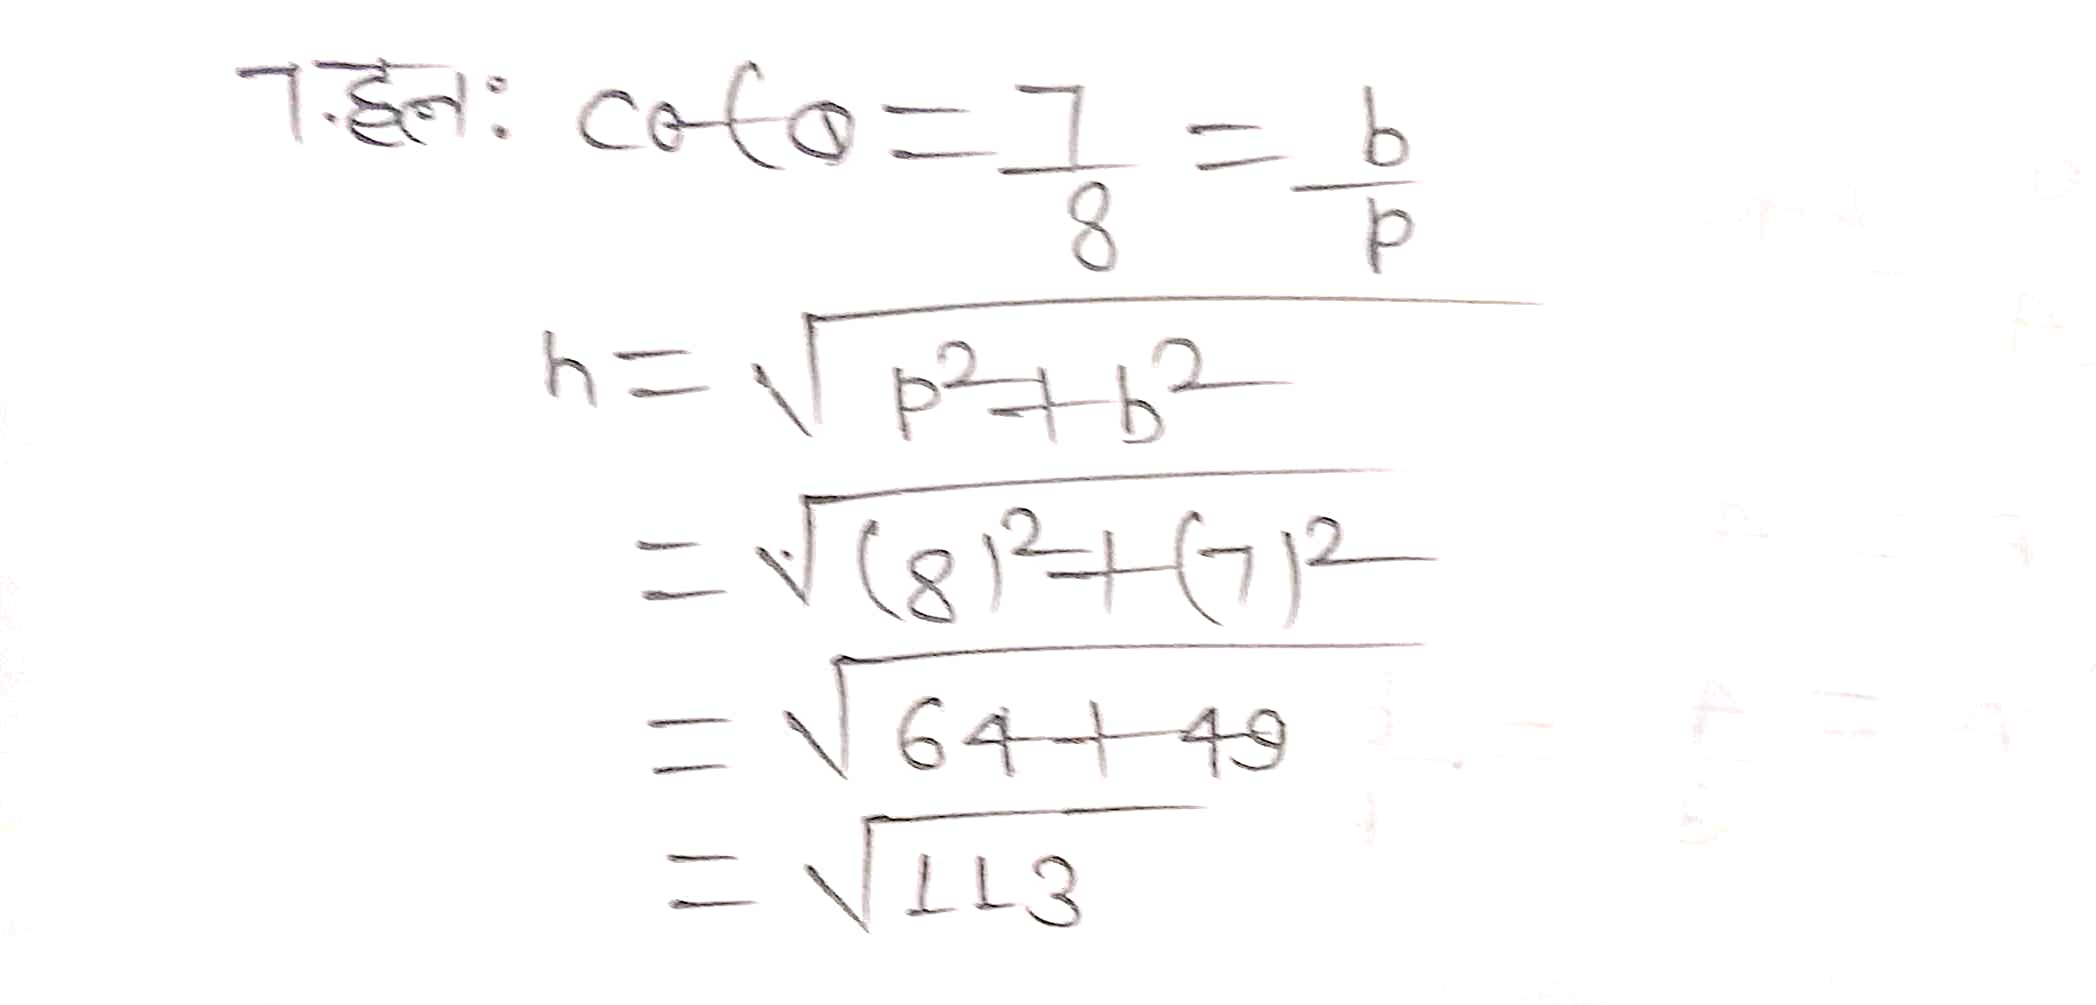 7.हल: cotθ = 7/8 = b/p
h = √(p²+b²)
= √((8)²+(7)²)
= √(64+49)
= √113